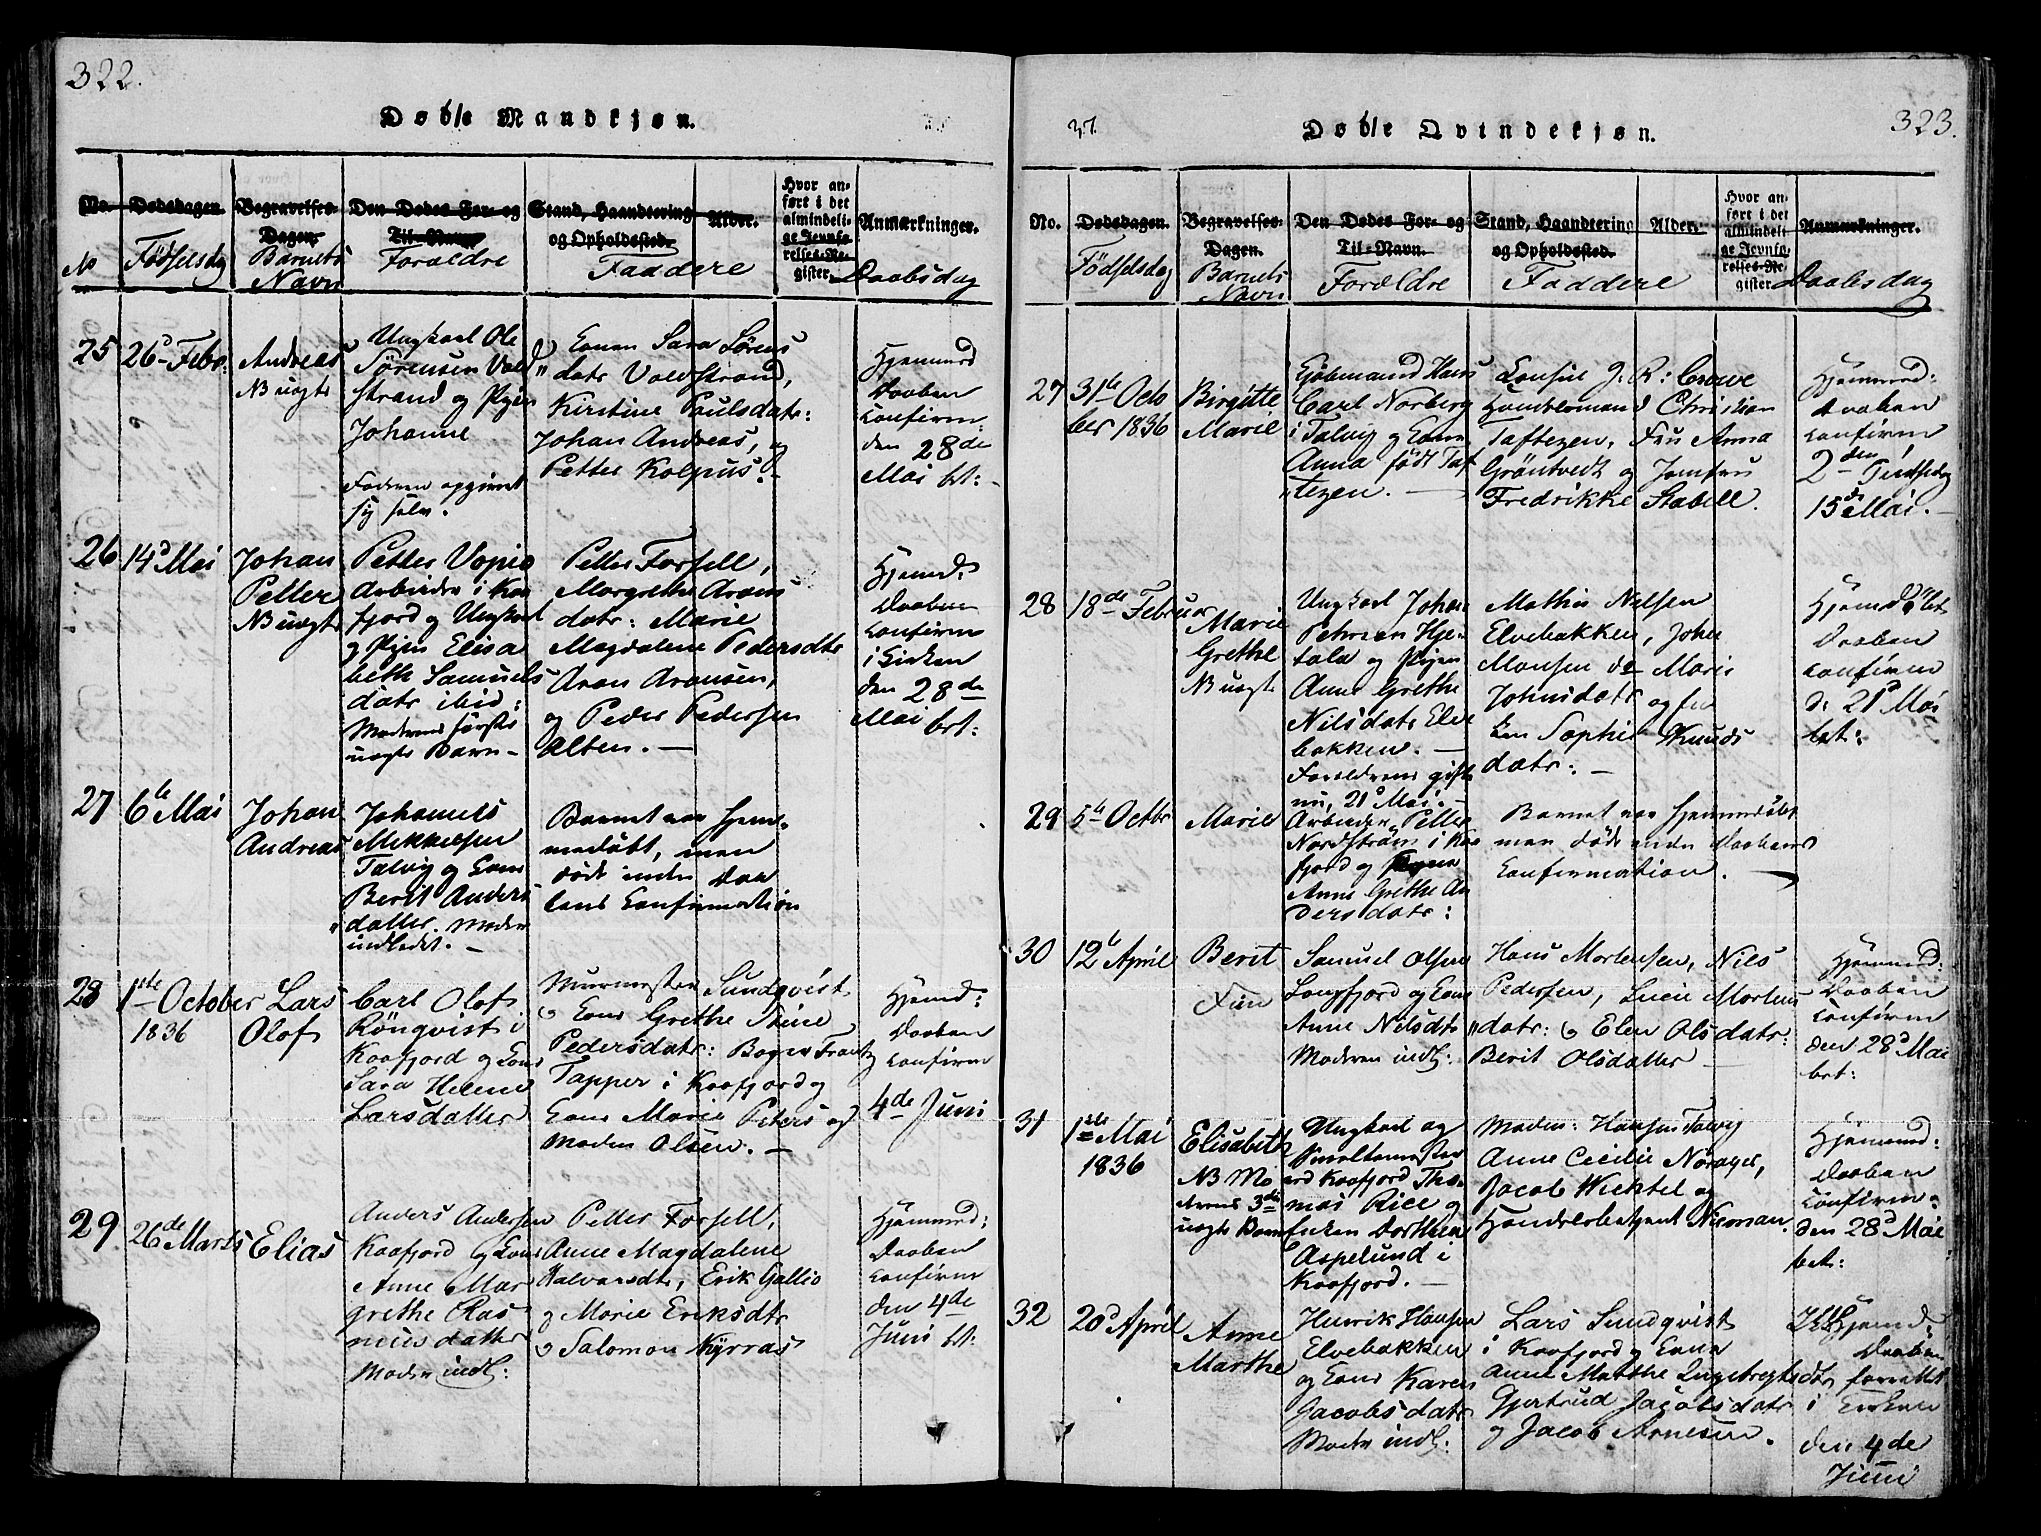 322.
Døde Mandkjøn.
No.
Dødsdagen.
Begravelses-
Dagen.
Den Dødes For- og
Til-Navn.
Stand, Haandtering
og Opholdssted.
Alder.
Hvor an-
ført i det
almindeli-
ge Jevnfø-
relses-Re-
gister.
Anmærkninger.
No
Fødselsdag
Barnets
Navn
Forældre
Faddere
Daabsdag
25
26d Febr:
Andreas
NB uægte
Ungkarl Ole
Sørensen Vold
strand og Pigen
Johanne
Faderen opgivet
sig selv.
Konen Sara Sørens
datr Voldstrand,
Kirstine Paulsdatr:
Johan Andreas, og
Petter Kolpus.
Hjemmed
Daaben
confirm
den 28de
Mai bt:
26
14d Mai
Johan
Petter
NB uægte
Petter Vopio
Arbeider i Kaa
fjord og Ungkarl
og Pigen Elisa
beth Samuels
datr ibid:
Moderens første
uægte Barn -
Petter Forsell,
Margrethe Arons
datr: Marie
Magdalene Pedersdtr
Aron Aronsen,
og Peder Pedersen
Alten. -
Hjemd:
Daaben
confirm
i Kirken
den 28de
Mai bet:
27
6te Mai
Johan
Andreas
Johannes
Mikkelsen
Talvig og Kone
Berit Anders
datter. Moder
indledet. -
Barnet var hjem-
medøbt, men
død inden Daa
bens Confirmation
28
1ste October
1836
Lars
Olof
Carl Olof
Rönqvist i
Kaafjord og Kone
Sara Helene
Larsdatter
Murmester Sundqvist
og Kone Grethe Stine
Pedersdatr: Bager Frantz
Tapper i Kaafjord og
Kone Marie Peters og
Maden Olsen. -
Hjemd:
Daaben
confirm
4de Juni
29
26de Marts
Elias
Anders Andersen
Kaafjord og Kone
Anne Mar
grethe Ras
musdatter
Moder indl:
Petter Forsell,
Anne Magdalene
Halvorsdtr, Erik Gallio
og Marie Eriksdtr
og Salomon Kyrras
Hjemmed:
Daaben
confirm
den 4de
Juni bt:
37.
Døde Qvindekjøn.
323.
No.
Dødsdagen.
Begravelses-
Dagen.
Den Dødes For- og
Til-Navn.
Stand, Haandtering
og Opholdssted.
Alder.
Hvor an-
ført i det
almindeli-
ge Jevnfø-
relses-Re-
gister.
Anmærkninger.
Fødselsdag
Barnets
Navn
Forældre
Faddere
Daabsdag
27
31te Octo
ber 1836
Birgitte
Marie
Kjøbmand Hans
Carl Norberg
i Talvig og Kone
Anna født Taf
tezen. -
Consul J. R: Crowe
Handelsmand Christian
Taftezen, Fru Anna
Gröntvedt og Jomfru
Fredrikke Stabell.
Hjemmed:
Daaben
confirm
2den Pindsedag
15de Mai. -
28
18de Februar
Marie
Grethe
NB uægte
Ungkarl Johan
Petersen Hje-
tala og Pigen
Anne Grethe
Nilsdatr Elve
bakken. -
Forældrene gift
nu, 21d Mai. -
Mathis Nilsen
Elvebakken, John
Monsen de Marie
Johnsdatr og
Sophie Knuds
datr: -
Hjemdøbet
Daaben
confirm
de 21d Mai
bet:
29
5te Octbr
Marie
Arbeider Petter
Nordström i Kaa
fjord og
Anne Grethe An
dersdatr:
Barnet var hjemmedøbt
men døde inden Daabens
Confirmation. -
30
12te April
Berit
Fin
Samuel Olsen
Langfjord og Kone
Anne Nilsdtr
Moderen indl:
Hans Mortensen, Nils
Pedersen, Lucie Mortens
datr: og Elen Olsdatr:
Berit Olsdatter -
Hjemmed:
Daaben
confirm
den 28d Mai
bet:
31
1ste Mai
1836
Elisabeth
NB Mo
derens 3die
uægte Barn
Ungkarl og
Smeltemester
ved Kaafjord Tho-
mas Rice og
Enken Dorthea
Aspelund i
Kaafjord. -
Maden: Hansen Talvig
Anne Cecilie Norager,
Jacob Wicktel og
Handelsbetjent Nieman.
Hjemmed:
Daaben
confirm-
den 28d Mai
bet:
32
20d April
Anne
Marthe
Henrik Hansen
Elvebakken
og Kone Karen
Jacobsdatr
Moder indl:
Lars Sundqvist
i Kaafjord og Kone
Anne Marthe Ingebregtsdtr
Gjertrud Jacobsdatr
og Jacob Arnesen.
Hjemd:
Daaben
forrettet
i Kirken
den 4de
Juni